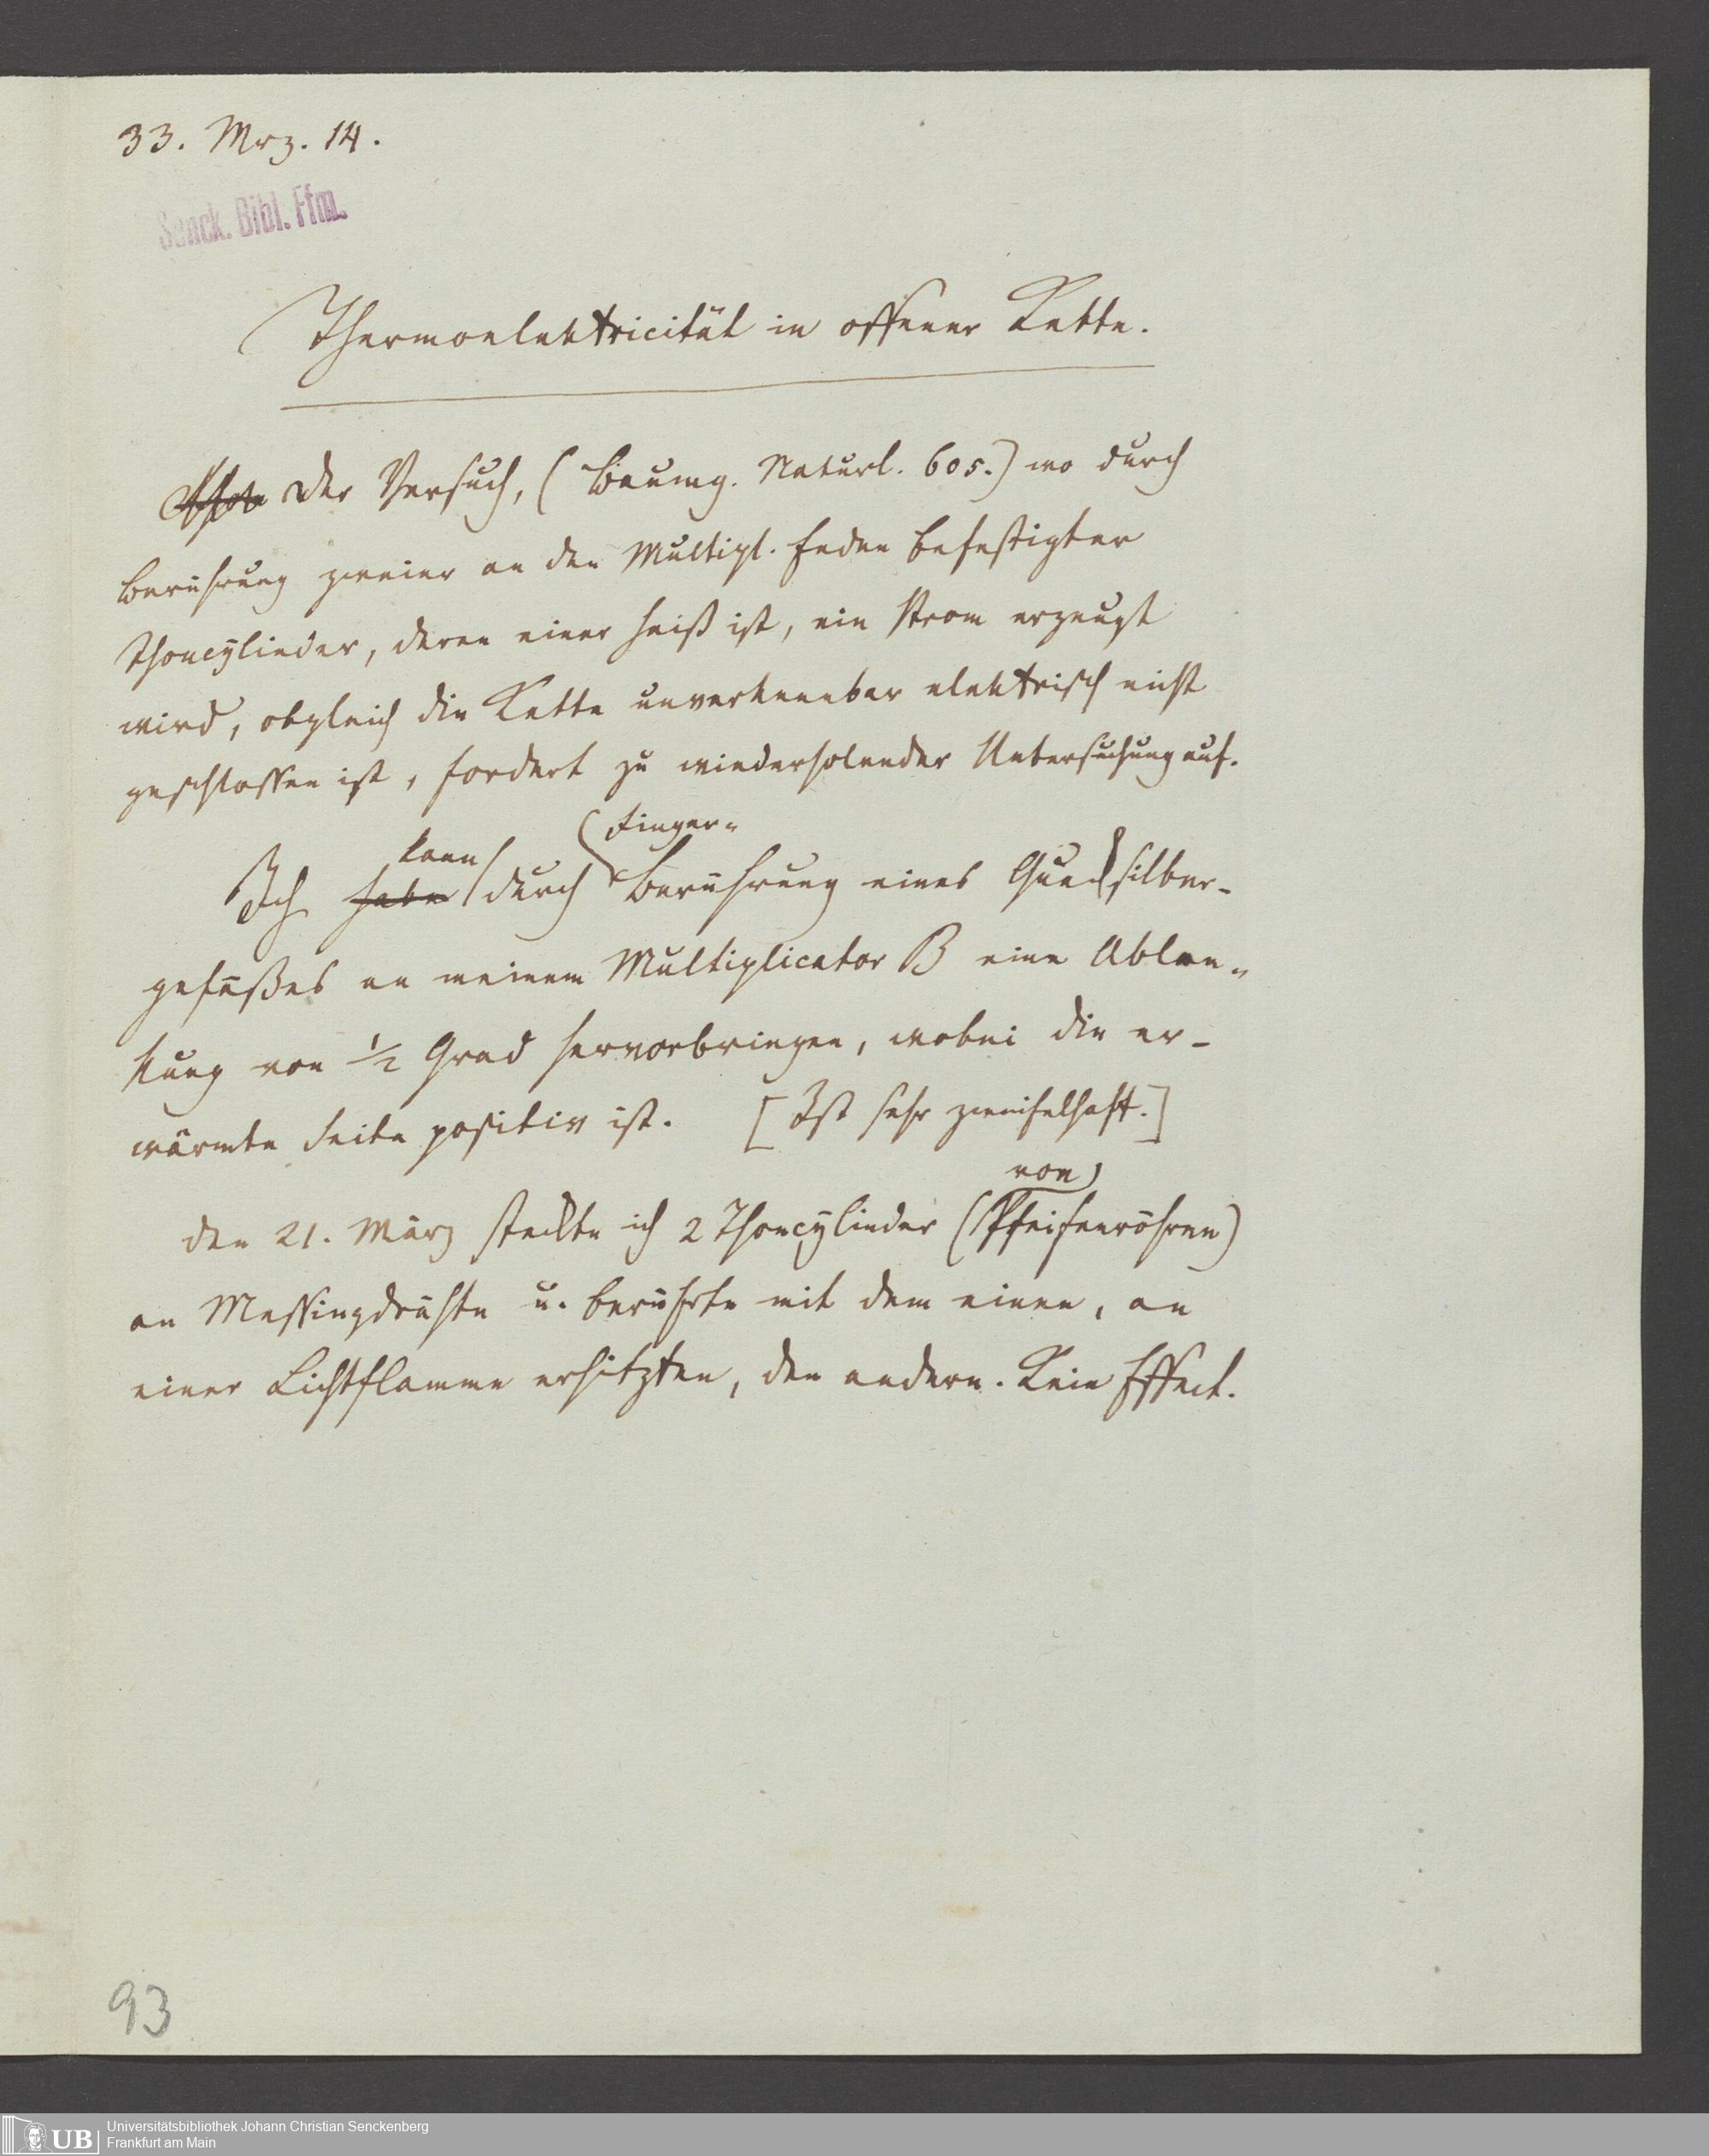 33. Mrz. 14.
Senck. Bibl. Ffm.
Thermoelektricität in offener Kette.
Der Versuch, (Baumg. Naturl. 605.) wo durch
Berührung zweier an den Multipl. Enden befestigter
Thoncylinder, deren einer heiß ist, ein Strom erzeugt
wird, obgleich die Kette unverkennbar elektrisch nicht
geschlossen ist, fordert zu wiederholender Untersuchung auf.
kann Finger-
Ich habe durch Berührung eines Quecksilber-
gefäßes an meinem Multiplicator B eine Ablen-
kung von 1/2 Grad hervorbringen, wobei die er-
wärmte Seite positiv ist. [Ist sehr zweifelhaft.]
von
den 21. März steckte ich 2 Thoncylinder (Pfeifenröhren)
an Messingdrähte u. berührte mit dem einen, an
einer Lichtflamme erhitzten, den andern. Kein Effect.
93
UB Universitätsbibliothek Johann Christian Senckenberg
Frankfurt am Main